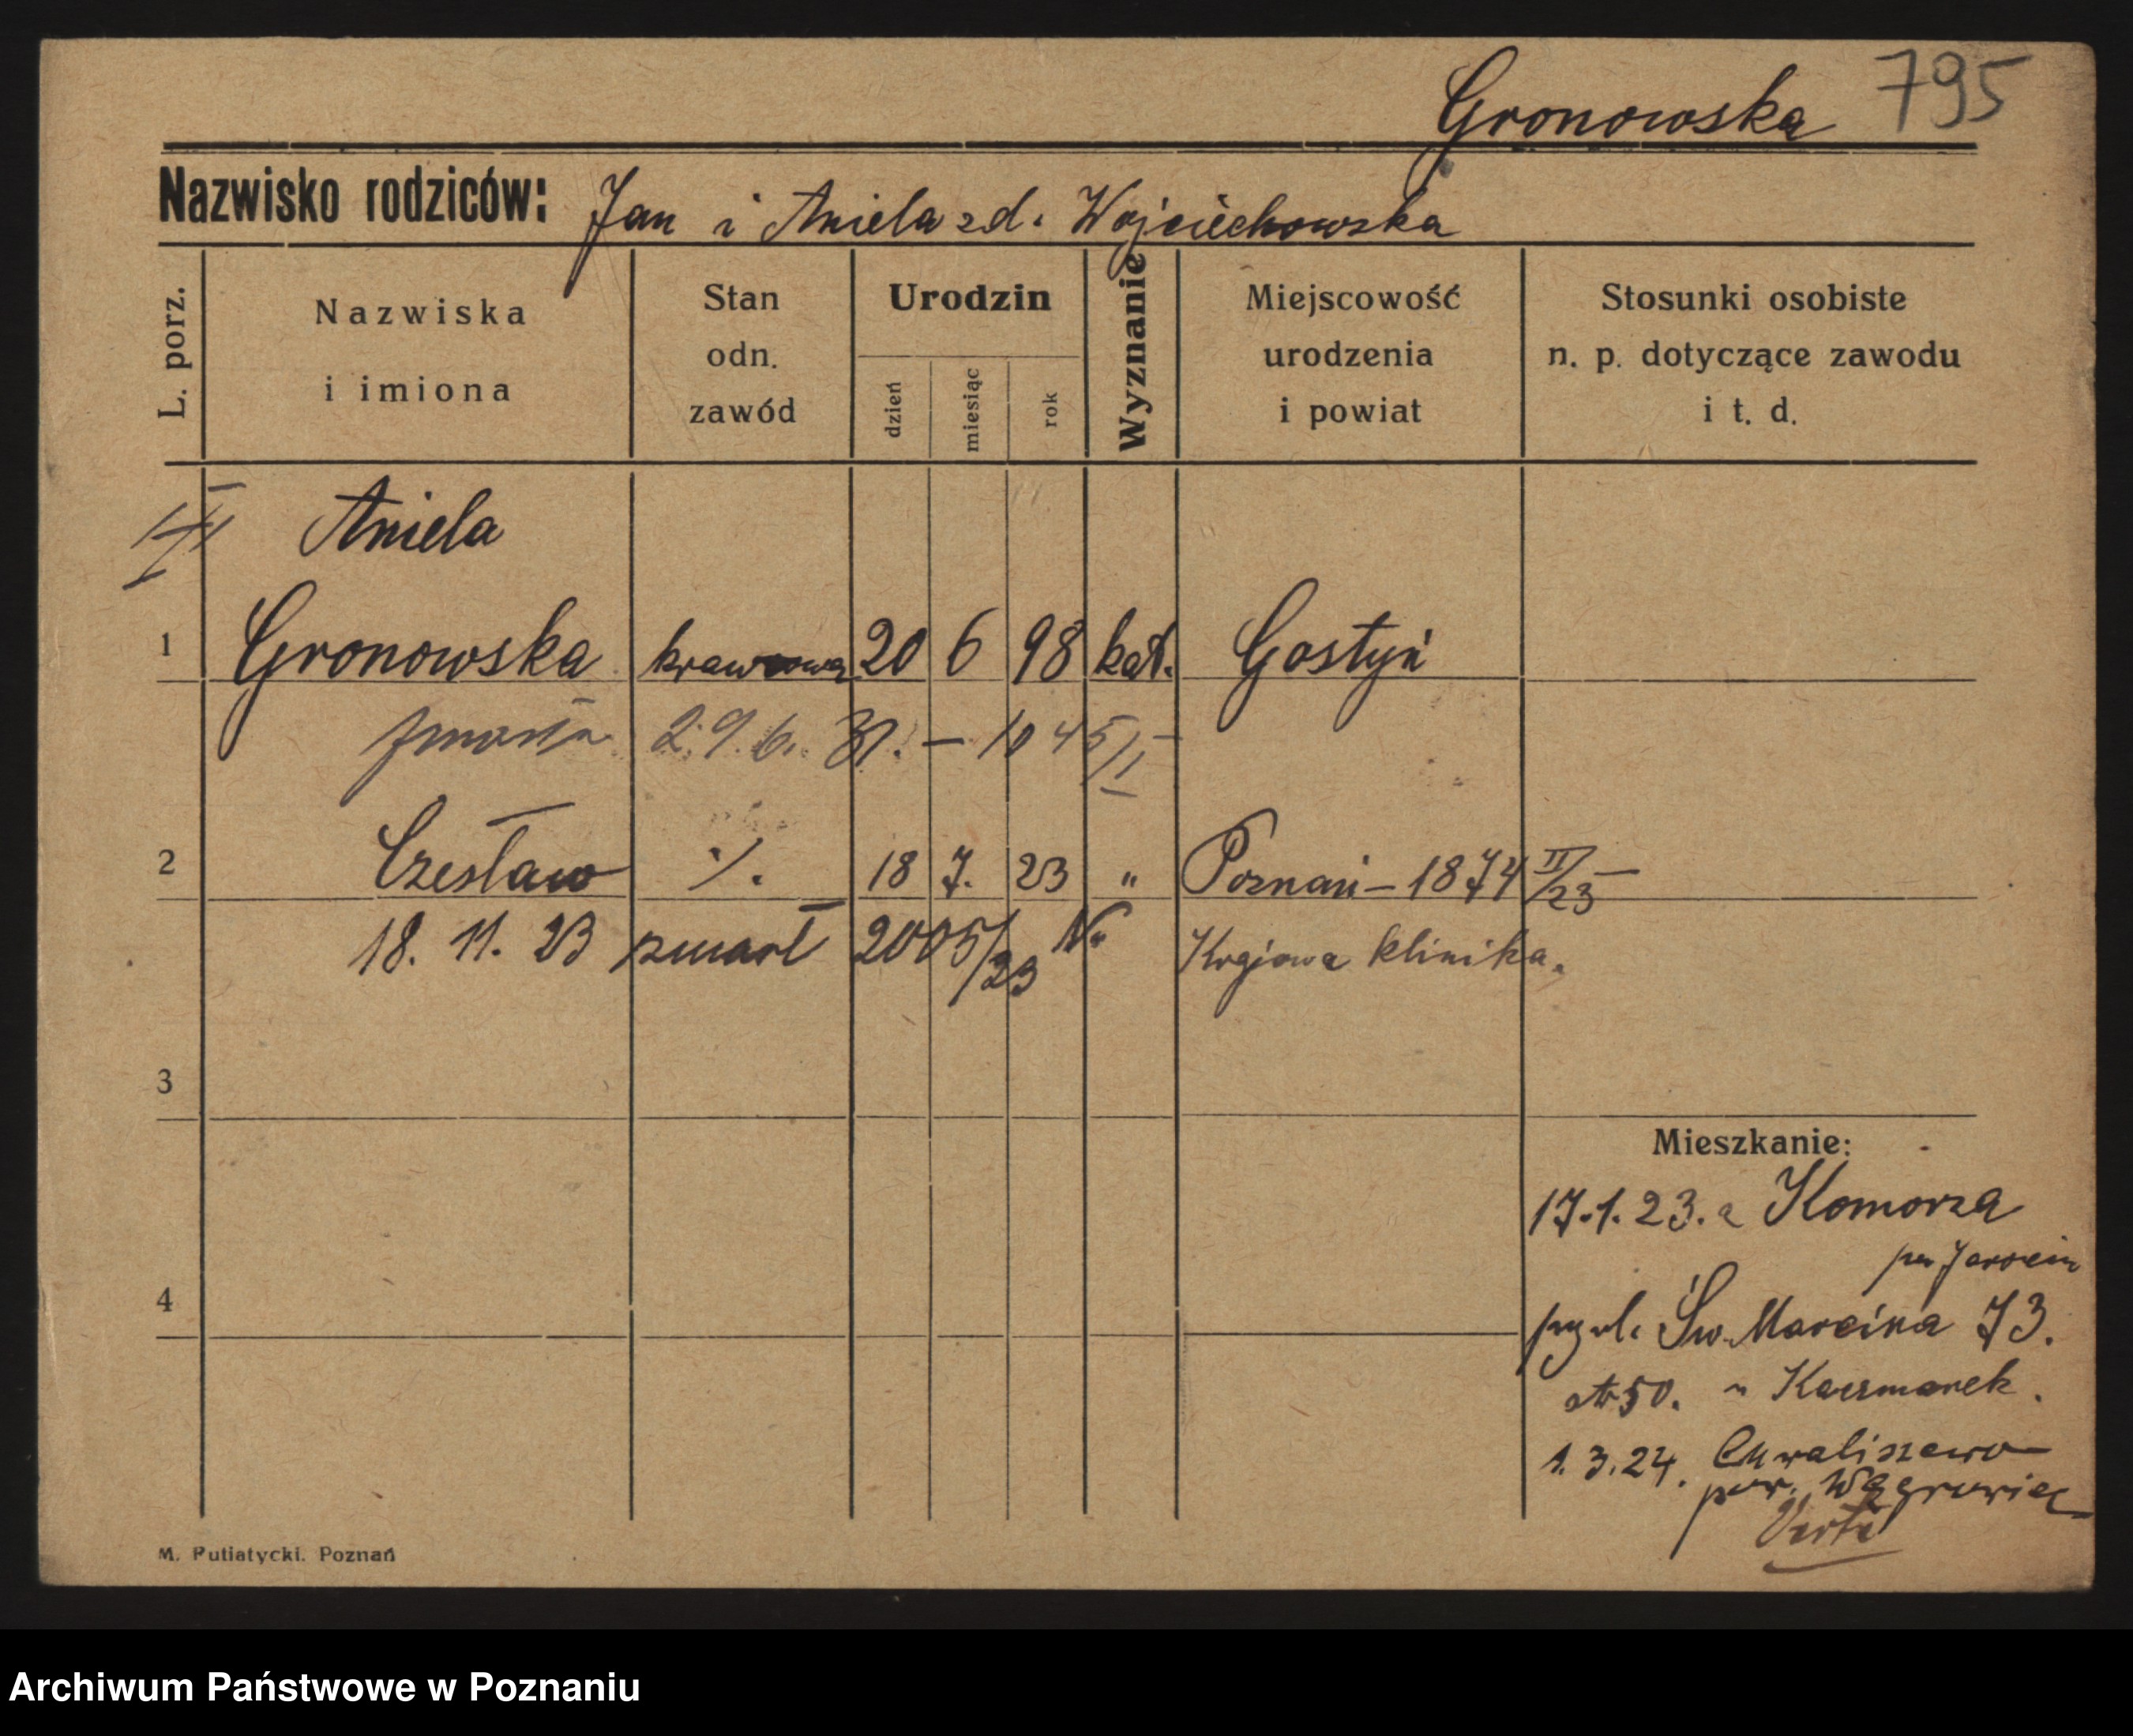 Gronowska 795
Nazwisko rodziców: Jan i Aniela zd. Wojciechowska
L. porz.
Nazwiska i imiona
Stan odn. zawód
Urodzin
dzień
miesiąc
rok
Wyznanie
Miejscowość urodzenia i powiat
Stosunki osobiste n. p. dotyczące zawodu i t. d.
Aniela
1 Gronowska krawcowa 20 6 98 kat. Gostyń
zmarła 29. 6. 31. – 1045/I
2 Czesław ·/. 18 7. 23 " Poznań – 1874 II/23
18. 11. 23 zmarł 2005/23 IV Krajowa klinika.
3
4
Mieszkanie:
17.1.23. z Komorza
Jarocin
ul. Św. Marcina 73.
50. u Kaczmarek.
1. 3. 24. Chwaliszewo
pow. Wągrowiec
Verte
M. Putiatycki. Poznań
Archiwum Państwowe w Poznaniu